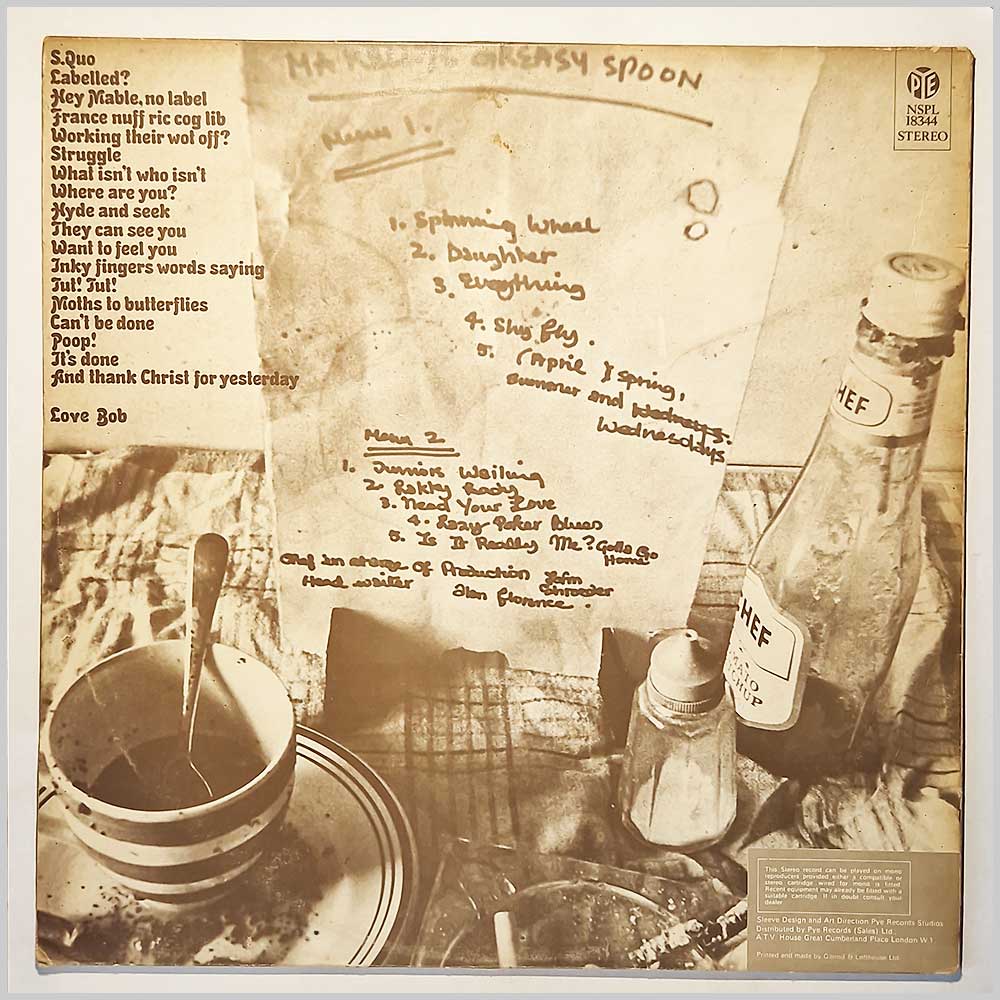 S.Quo
Labelled?
Hey Mable, no label
France nuff ric cog lib
Working their wot off?
Struggle
What isn't who isn't
Where are you?
Hyde and seek
They can see you
Want to feel you
Inky fingers words saying
Tut! Tut!
Moths to butterflies
Can't be done
Poop!
It's done
And thank Christ for yesterday
Love Bob
GREASY SPOON
Menu 1.
1. Spinning Wheel
2. Daughter
3. Everything
4. Shy fly.
5. (April) Spring,
Summer and Wednesdays.
Wednesdays
Menu 2
1. Juniors Wailing
2. Lakky Lady
3. Need Your Love
4. Lazy Poker Blues
5. Is It Really Me? Gotta Go
Home
Chef in charge of Production John
Schroeder
Head waiter Alan Florence.
PYE
NSPL
18344
STEREO
HEF
CHEF
TOMATO
KETCHUP
This Stereo record can be played on mono
reproducers provided either a compatible or
stereo cartridge wired for mono is fitted
Recent equipment may already be fitted with a
suitable cartridge. If in doubt consult your
dealer
Sleeve Design and Art Direction Pye Records Studios
Distributed by Pye Records (Sales) Ltd.
A.T.V. House Great Cumberland Place London W.1.
Printed and made by Garrod & Lofthouse Ltd.